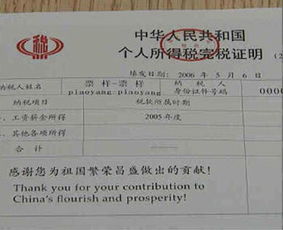 中华人民共和国
个人所得税完税证明
填发日期: 2006 年 5 月 6 日
纳税人姓名 票样-票样 piaoyang-piaoyang 纳税人身份证件号码 0000
纳税项目 税款所属时期
1、工资薪金所得 2005年度
2、其他各项所得
合 计
感谢您为祖国繁荣昌盛做出的贡献!
Thank you for your contribution to
China's flourish and prosperity!